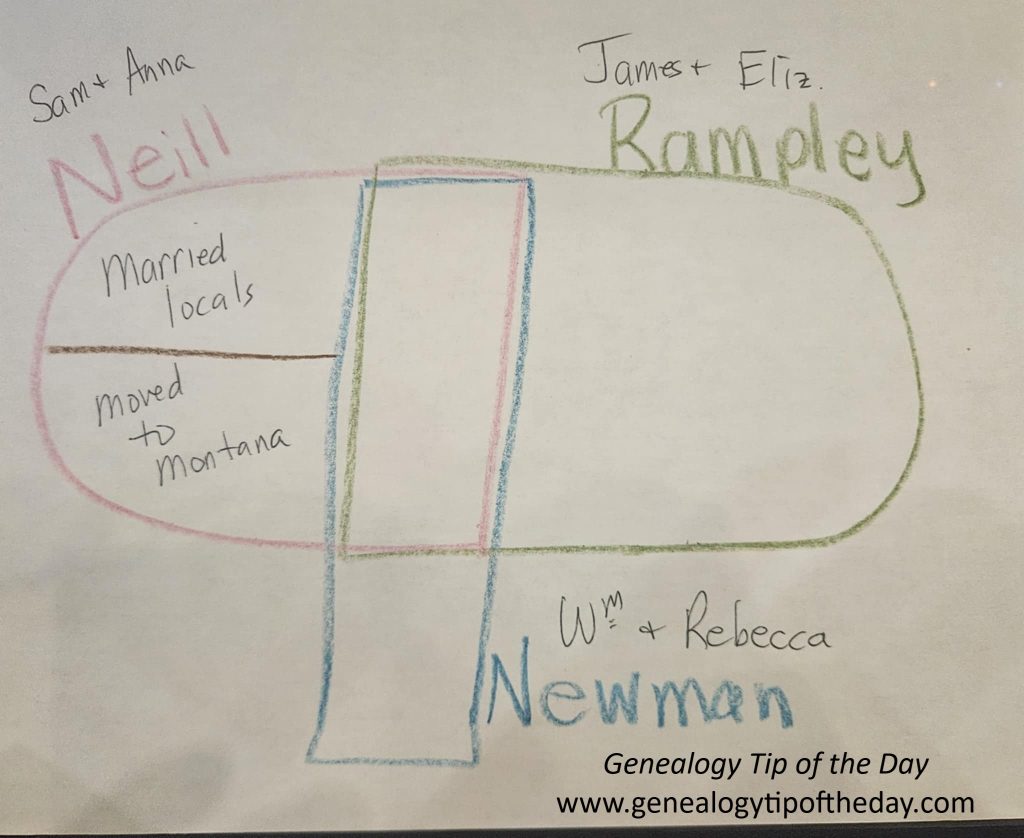 Sam + Anna
Neill
James + Eliz.
Rampley
Married
locals
moved
to
montana
Wm + Rebecca
Newman
Genealogy Tip of the Day
www.genealogytipoftheday.com